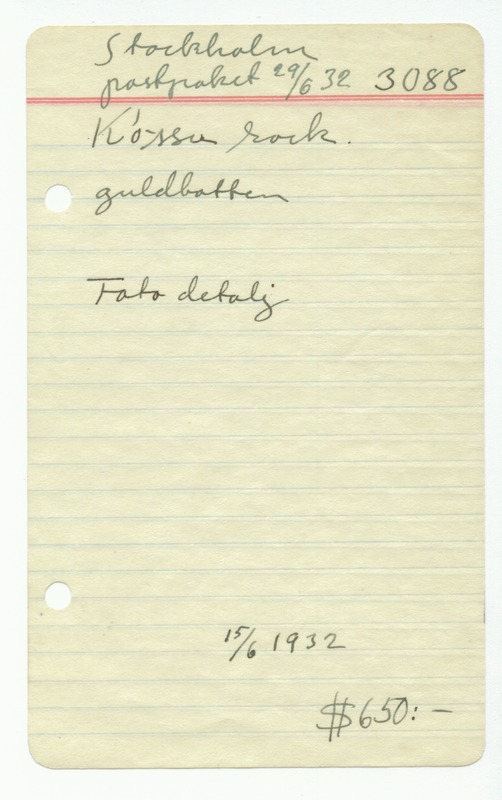 Stockholm
postpaket 29/6 32 3088
Késsu rock.
guldbotten
Foto detalj
15/6 1932
$650:-